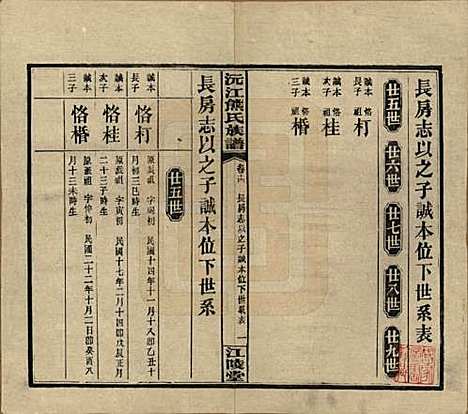 長房志以之子誠本位下世系表
廿五世 廿六世 廿七世 廿八世 廿九世
誠本 恪 杠
恪 桂
恪 㮗
沅江熊氏族譜 卷十六 長房志以之子誠本位下世系表 一 江陵堂
長房志以之子誠本位下世系
廿五世
誠本長子 恪杠 派祖 字 民國十四年十一月十八卽乙丑十月初三巳時生
誠本次子 恪桂 派祖 字寅初 民國十七年二月十四卽戊辰正月二十三子時生
誠本三子 派祖 字仲初 民國二十二年十月二日卽癸酉八月十三未時生